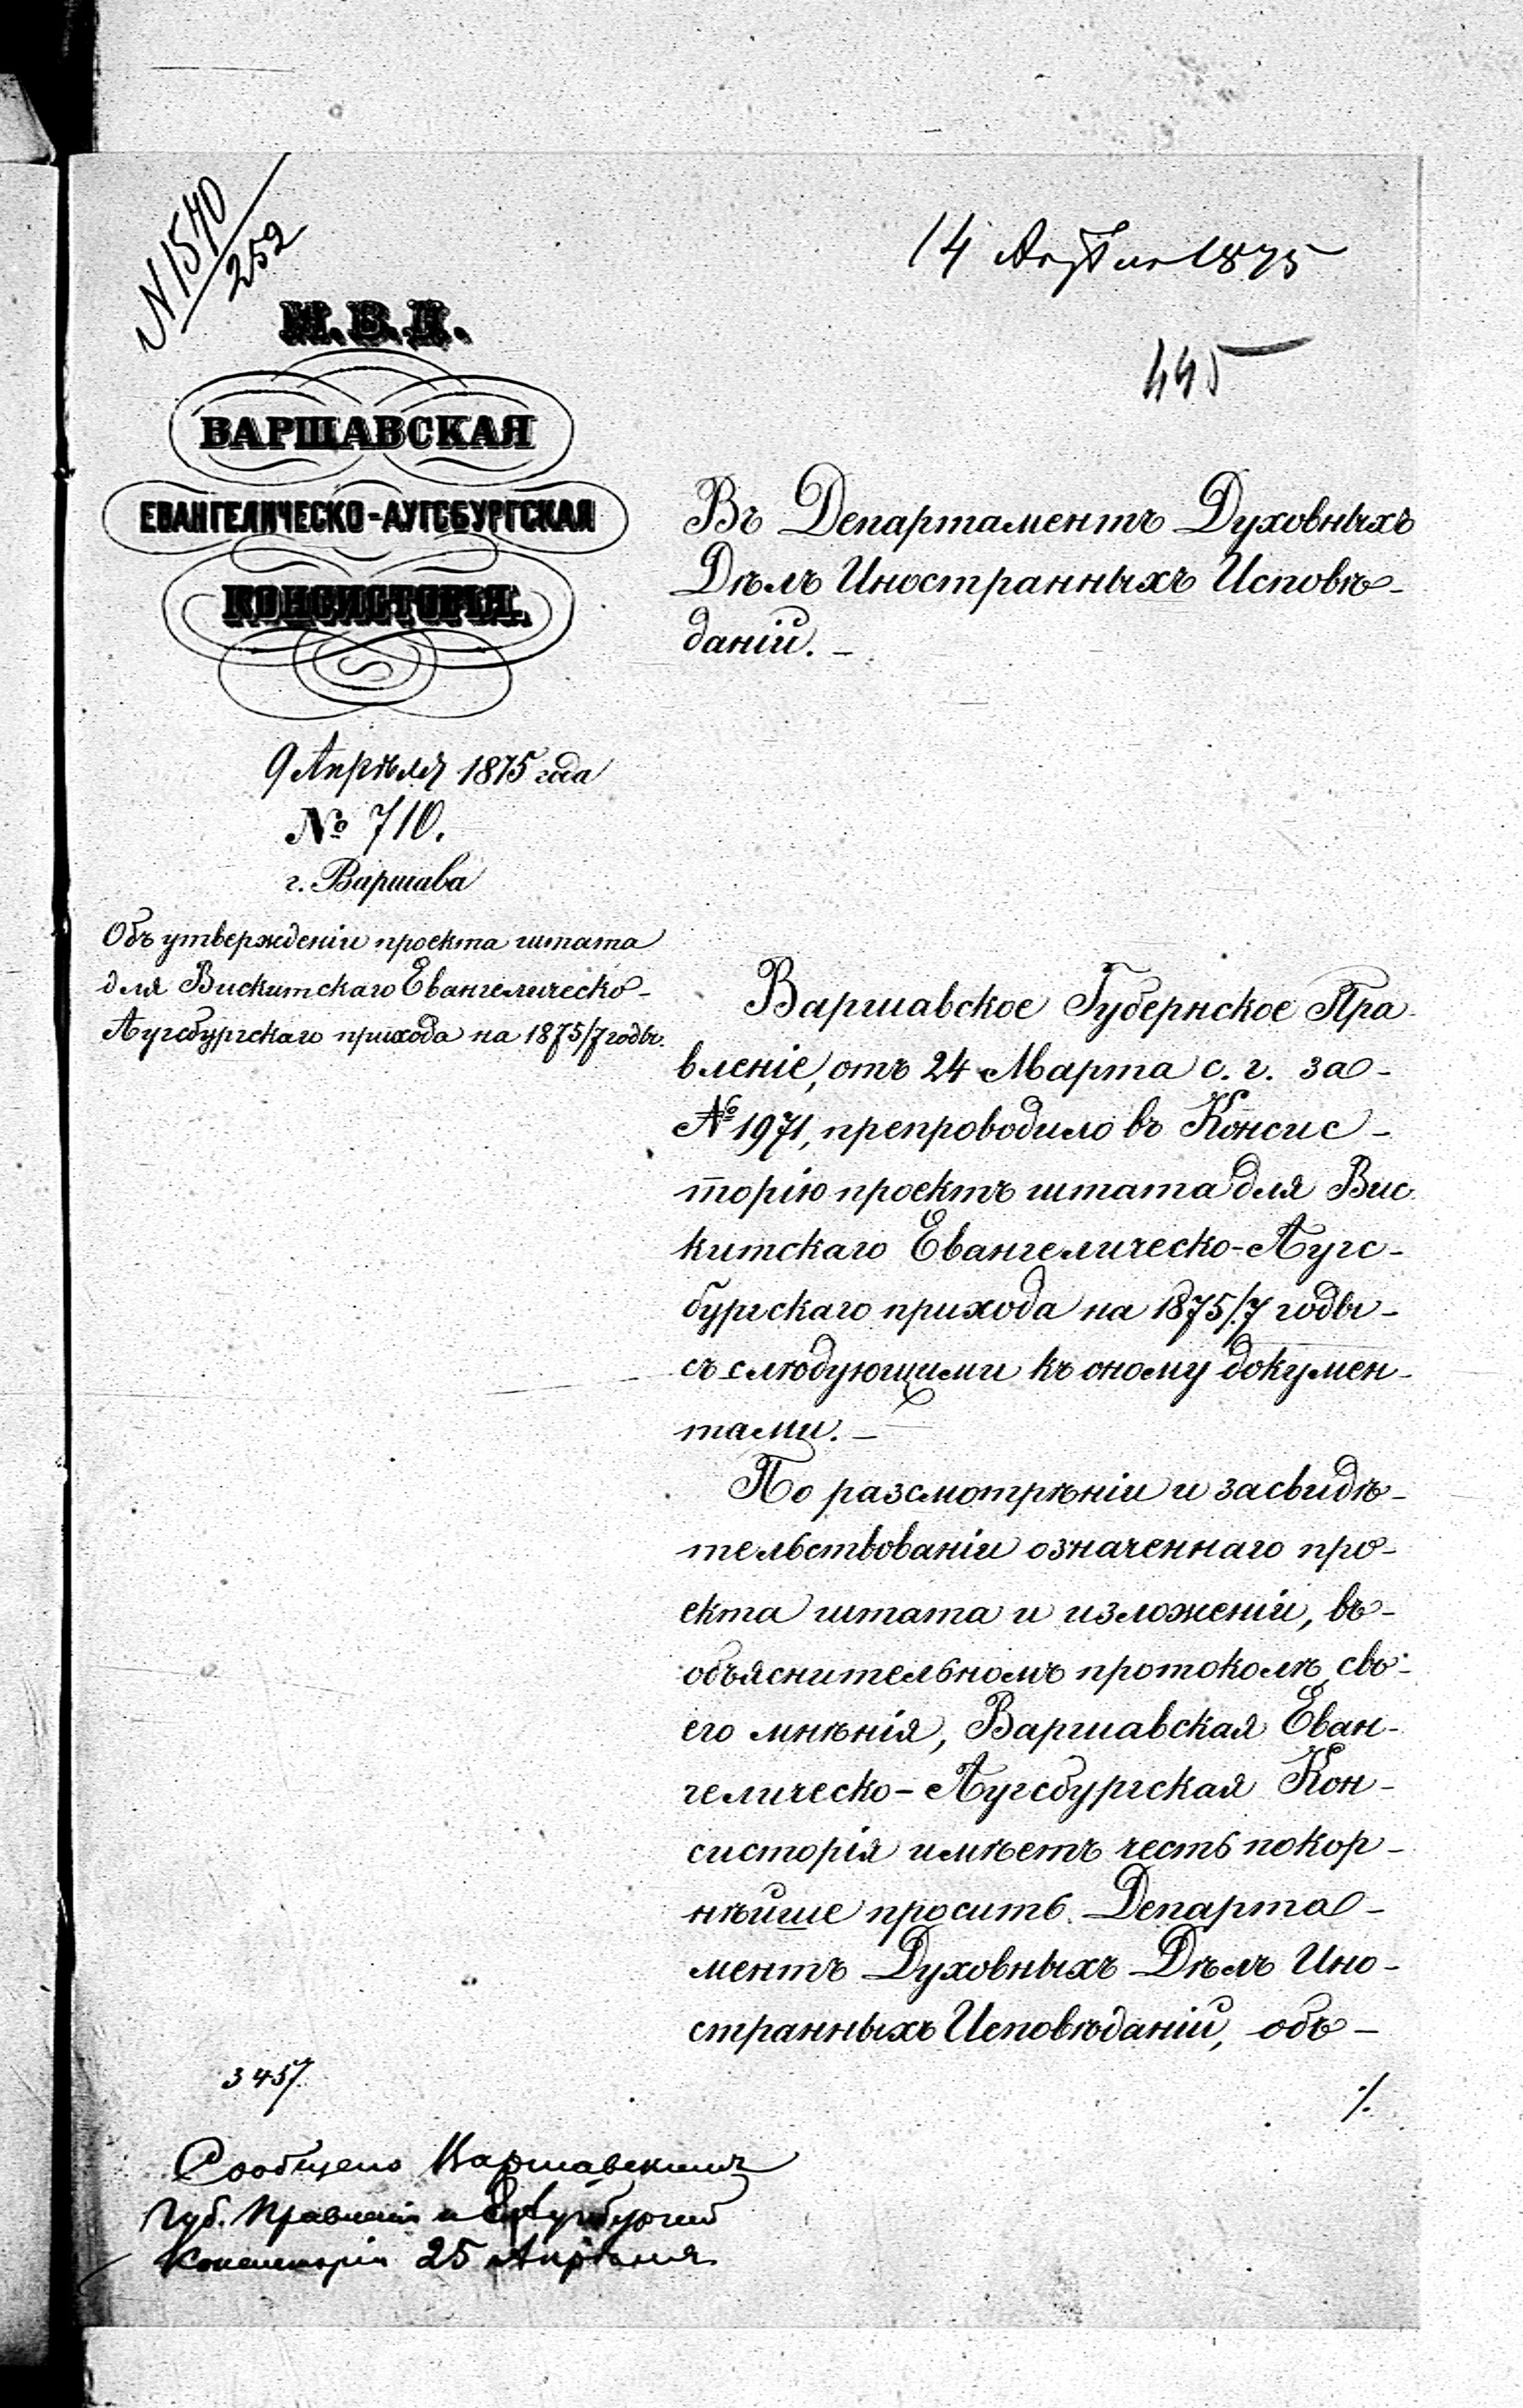 N 1570
252
14 Апрѣля 1875
445
М.В.Д.
ВАРШАВСКАЯ
ЕВАНГЕЛИЧЕСКО-АУГСБУРГСКАЯ
КОНСИСТОРІЯ.
9 Апрѣля 1875 года
№ 710.
г. Варшава
Объ утвержденіи проекта штата
для Вискитскаго Евангелическо-
Аугсбургскаго прихода на 1875/7 годы.
Въ Департаментъ Духовныхъ
Дѣлъ Иностранныхъ Исповѣ-
даній. –
Варшавское Губернское Пра-
вленіе, отъ 24 Марта с. г. за-
№ 1971, препроводило въ Консис-
торію проектъ штата для Вис-
китскаго Евангелическо-Аугс-
бургскаго прихода на 1875/7 годы-
съ слѣдующими къ оному докумен-
тами. –
По разсмотрѣніи и засвидѣ-
тельствованіи означеннаго про-
екта штата и изложеніи, въ-
объяснительномъ протоколѣ, сво-
его мнѣнія, Варшавская Еван-
гелическо-Аугсбургская Кон-
систорія имѣетъ честь покор-
нѣйше просить Департа-
ментъ Духовныхъ Дѣлъ Ино-
странныхъ Исповѣданій, объ-
./.
3457.
Сообщено Варшавскимъ
Губ. Правленія и Аугсбургской
Консисторіи 25 Апрѣля